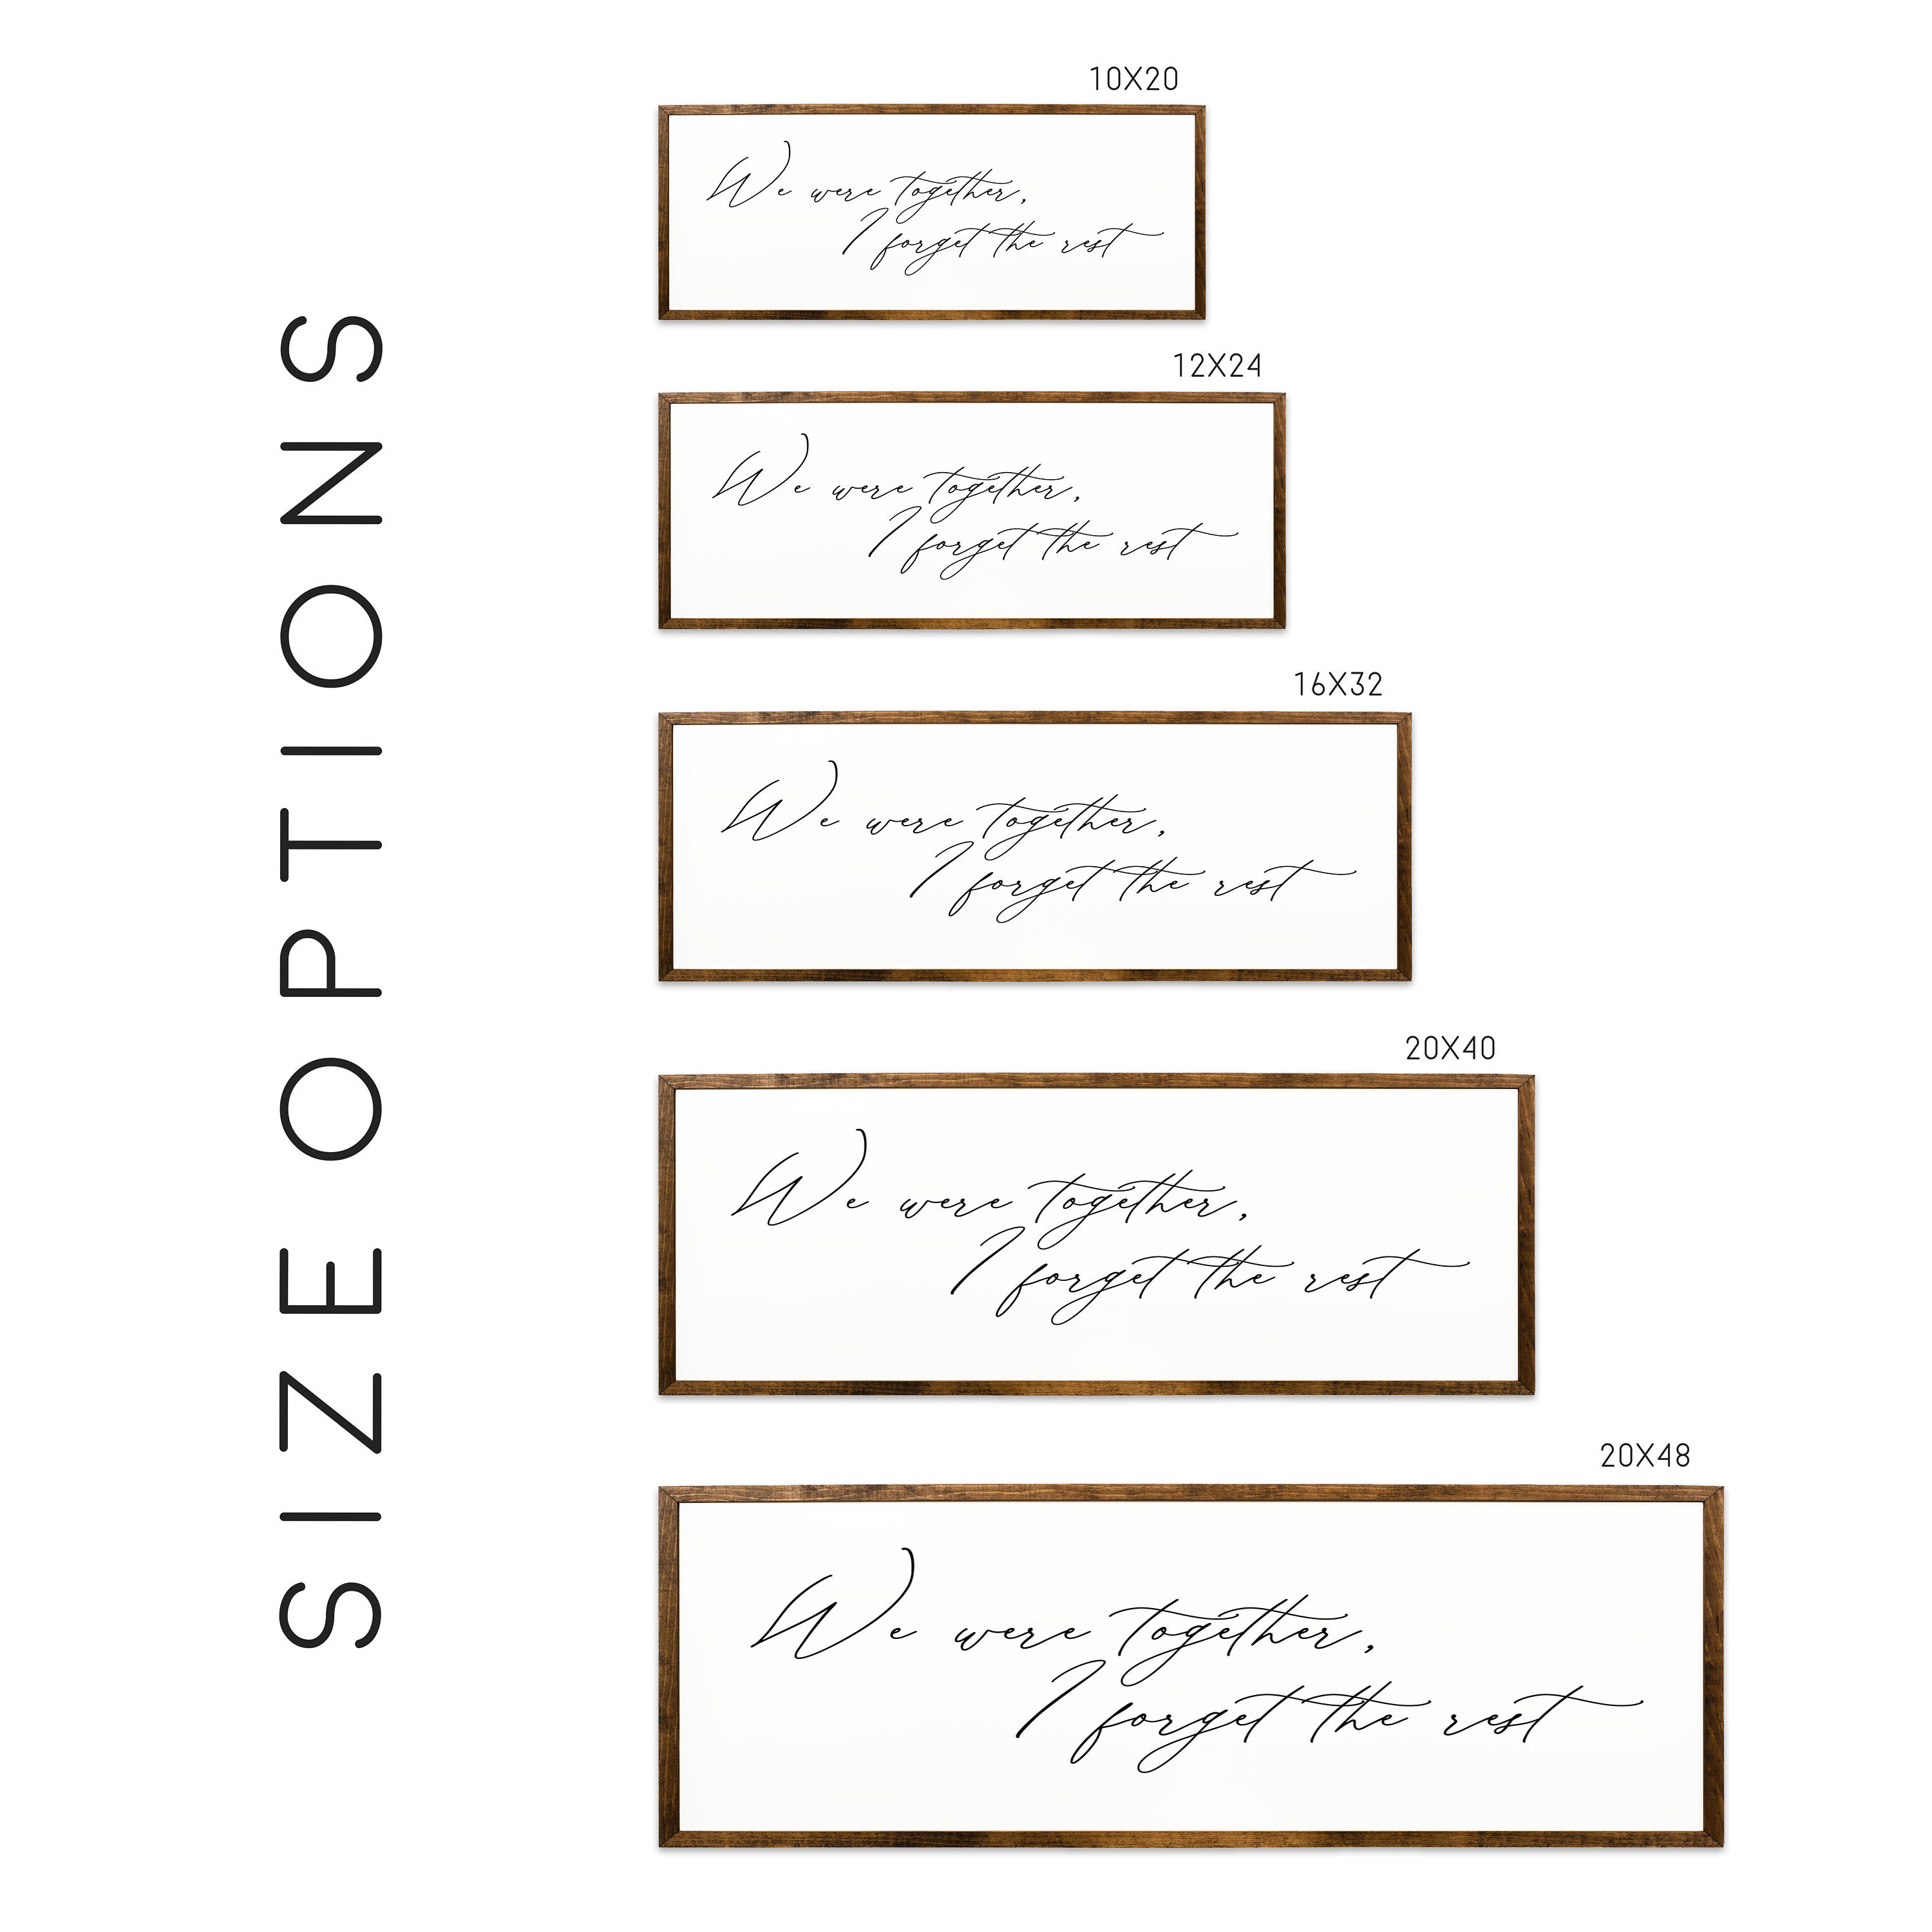 SIZE OPTIONS
10X20
We were together,
I forget the rest
12X24
We were together,
I forget the rest
16X32
We were together,
I forget the rest
20X40
We were together,
I forget the rest
20X48
We were together,
I forget the rest